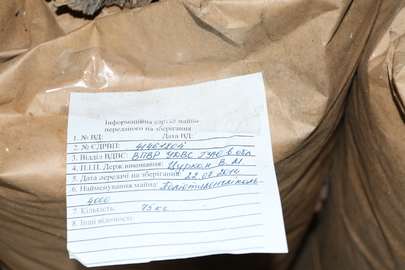 Інформаційна картка майна
переданого на зберігання
1. № ВД: Дата ВД:
2. № ЄДРВП: 41401504
3. Відділ ВДВС: ВПВР УДВС ГУЮ в обл
4. П.І.П. Держ.виконавця: Цуркан В. М.
5. Дата передачі на зберігання: 22.02.2014
6. Найменування майна: Поліетиленгліколь-
4000
7. Кількість: 75 кг.
8. Інші відомості: